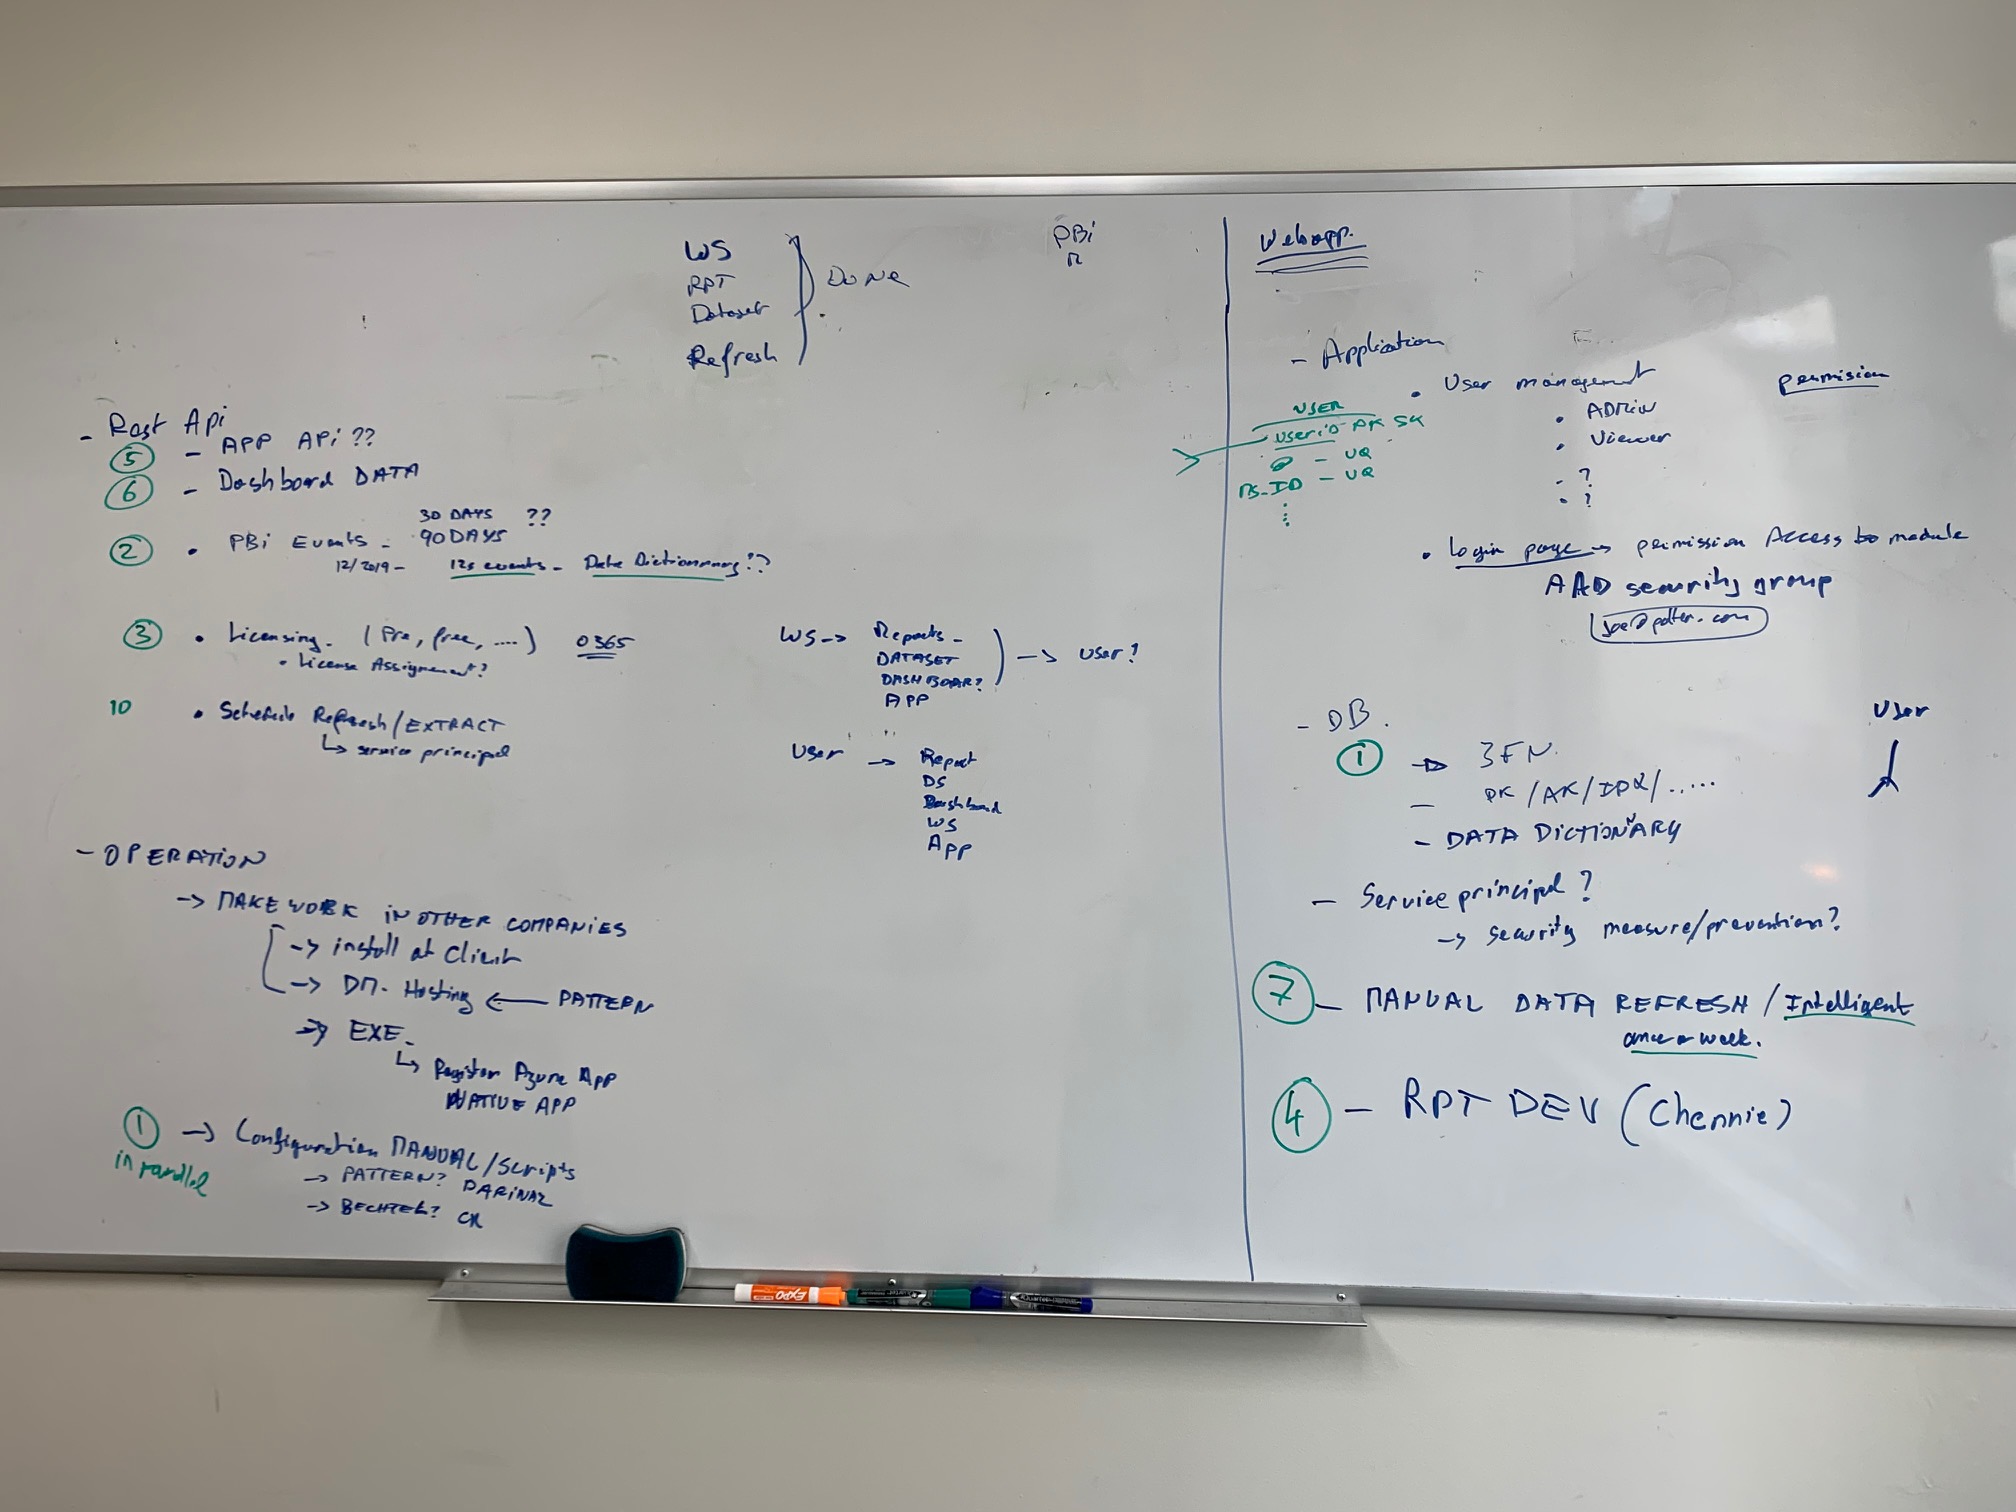 WS
RPT
Dataset
Refresh
DONE
PBi
- Rest Api
5 - APP APi ??
6 - Dashboard DATA
30 DAYS ??
2 • PBi Events - 90 DAYS
12/2019 - 125 events - Date Dictionnary ??
3 • Licensing. (Pro, free, ....) O365
• License Assignement?
10 • Schedule Refresh/EXTRACT
↳ service principal
WS -> Reports -
DATASET
DASHBOAR?
APP
-> user?
User -> Report
DS
Dashboard
WS
APP
- OPERATION
-> MAKE WORK IN OTHER COMPANIES
-> install at Client
-> DM. Hosting <- PATTERN
-> EXE.
↳ Register Azure App
NATIVE APP
1 -> Configuration MANUAL/Scripts
in parallel
-> PATTERN? PARINAZ
-> BECHTEL?
Webapp.
- Application
• User management
permision
• ADMIN
• Viewer
• ?
• ?
USER
UseriD AK SK
- UQ
MS_ID - UQ
• Login page -> primission Access to module
AAD security group
- DB.
User
1 -> 3FN.
- PK/AK/IDX/.....
- DATA DICTIONARY
- Service principal?
-> security measure/prevention?
7 - MANUAL DATA REFRESH / Intelligent
once a week.
4 - RPT DEV (Chennie)
EXPO